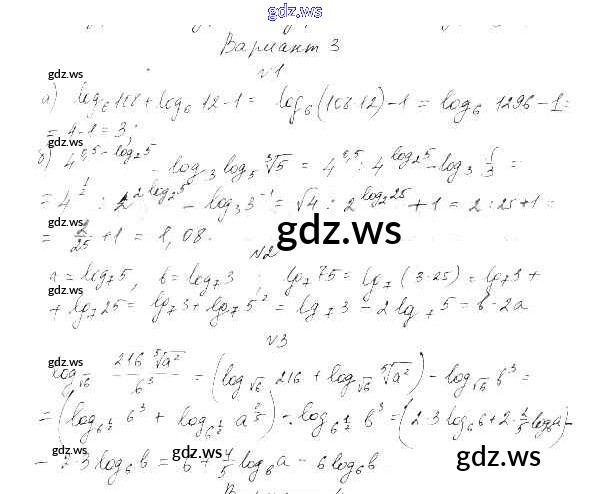 gdz.ws
Вариант 3
gdz.ws
№1
а) log₆108 + log₆ 12 - 1 = log₆(108·12) - 1 = log₆ 1296 - 1 =
= 4 - 1 = 3;
gdz.ws
б) 4^(0,5 - log₂5) - log₃ log₅ ∛5 = 4^(0,5) : 4^(log₂5) - log₃ 1/3 =
gdz.ws
= 4^(1/2) : 2^(2 log₂5) - log₃3⁻¹ = √4 : 2^(log₂25) + 1 = 2 : 25 + 1 =
gdz.ws
= 2/25 + 1 = 1,08.
gdz.ws
№2
a = log₇5, b = log₇3 ; log₇ 75 = log₇ (3·25) = log₇3 +
gdz.ws
+ log₇25 = log₇3 + log₇5² = log₇3 - 2 log₇5 = b · 2a
№3
gdz.ws
log_√6 (216 ⁵√a²)/b³ = (log_√6 216 + log_√6 ⁵√a²) - log_√6 b³ =
gdz.ws
= (log_6^(1/2) 6³ + log_6^(1/2) a^(2/5)) - log_6^(1/2) b³ = (2·3 log₆6 + 2·2/5 log₆a) -
gdz.ws
- 2·3 log₆b = 6 + 4/5 log₆a - 6 log₆b
gdz.ws